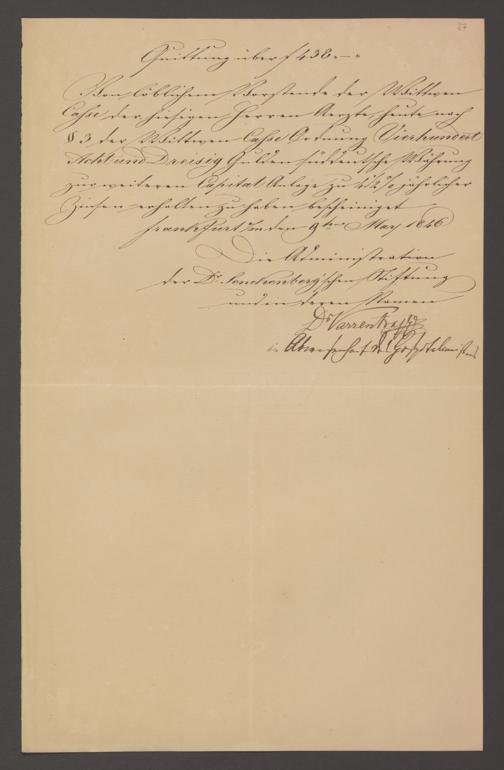 27
Quittung über f 438.–.–
Von löblichem Vorstande der Wittwen
Casse der hiesigen Herren Aerzte heute nach
§ 3 der Wittwen Casse Ordnung Vierhundert
Acht und Dreisig Gulden süddeutsche Währung
zur weiteren Capital Anlage zu jährlicher
Zinsen erhalten zu haben bescheiniget
Frankfurt a/m den 9ten May 1846
Die Administration
der Dr. Senckenberg'schen Stiftung
und in deren Namen
Dr Varrentrapp
in Abwesenheit des Hospitalmeisters